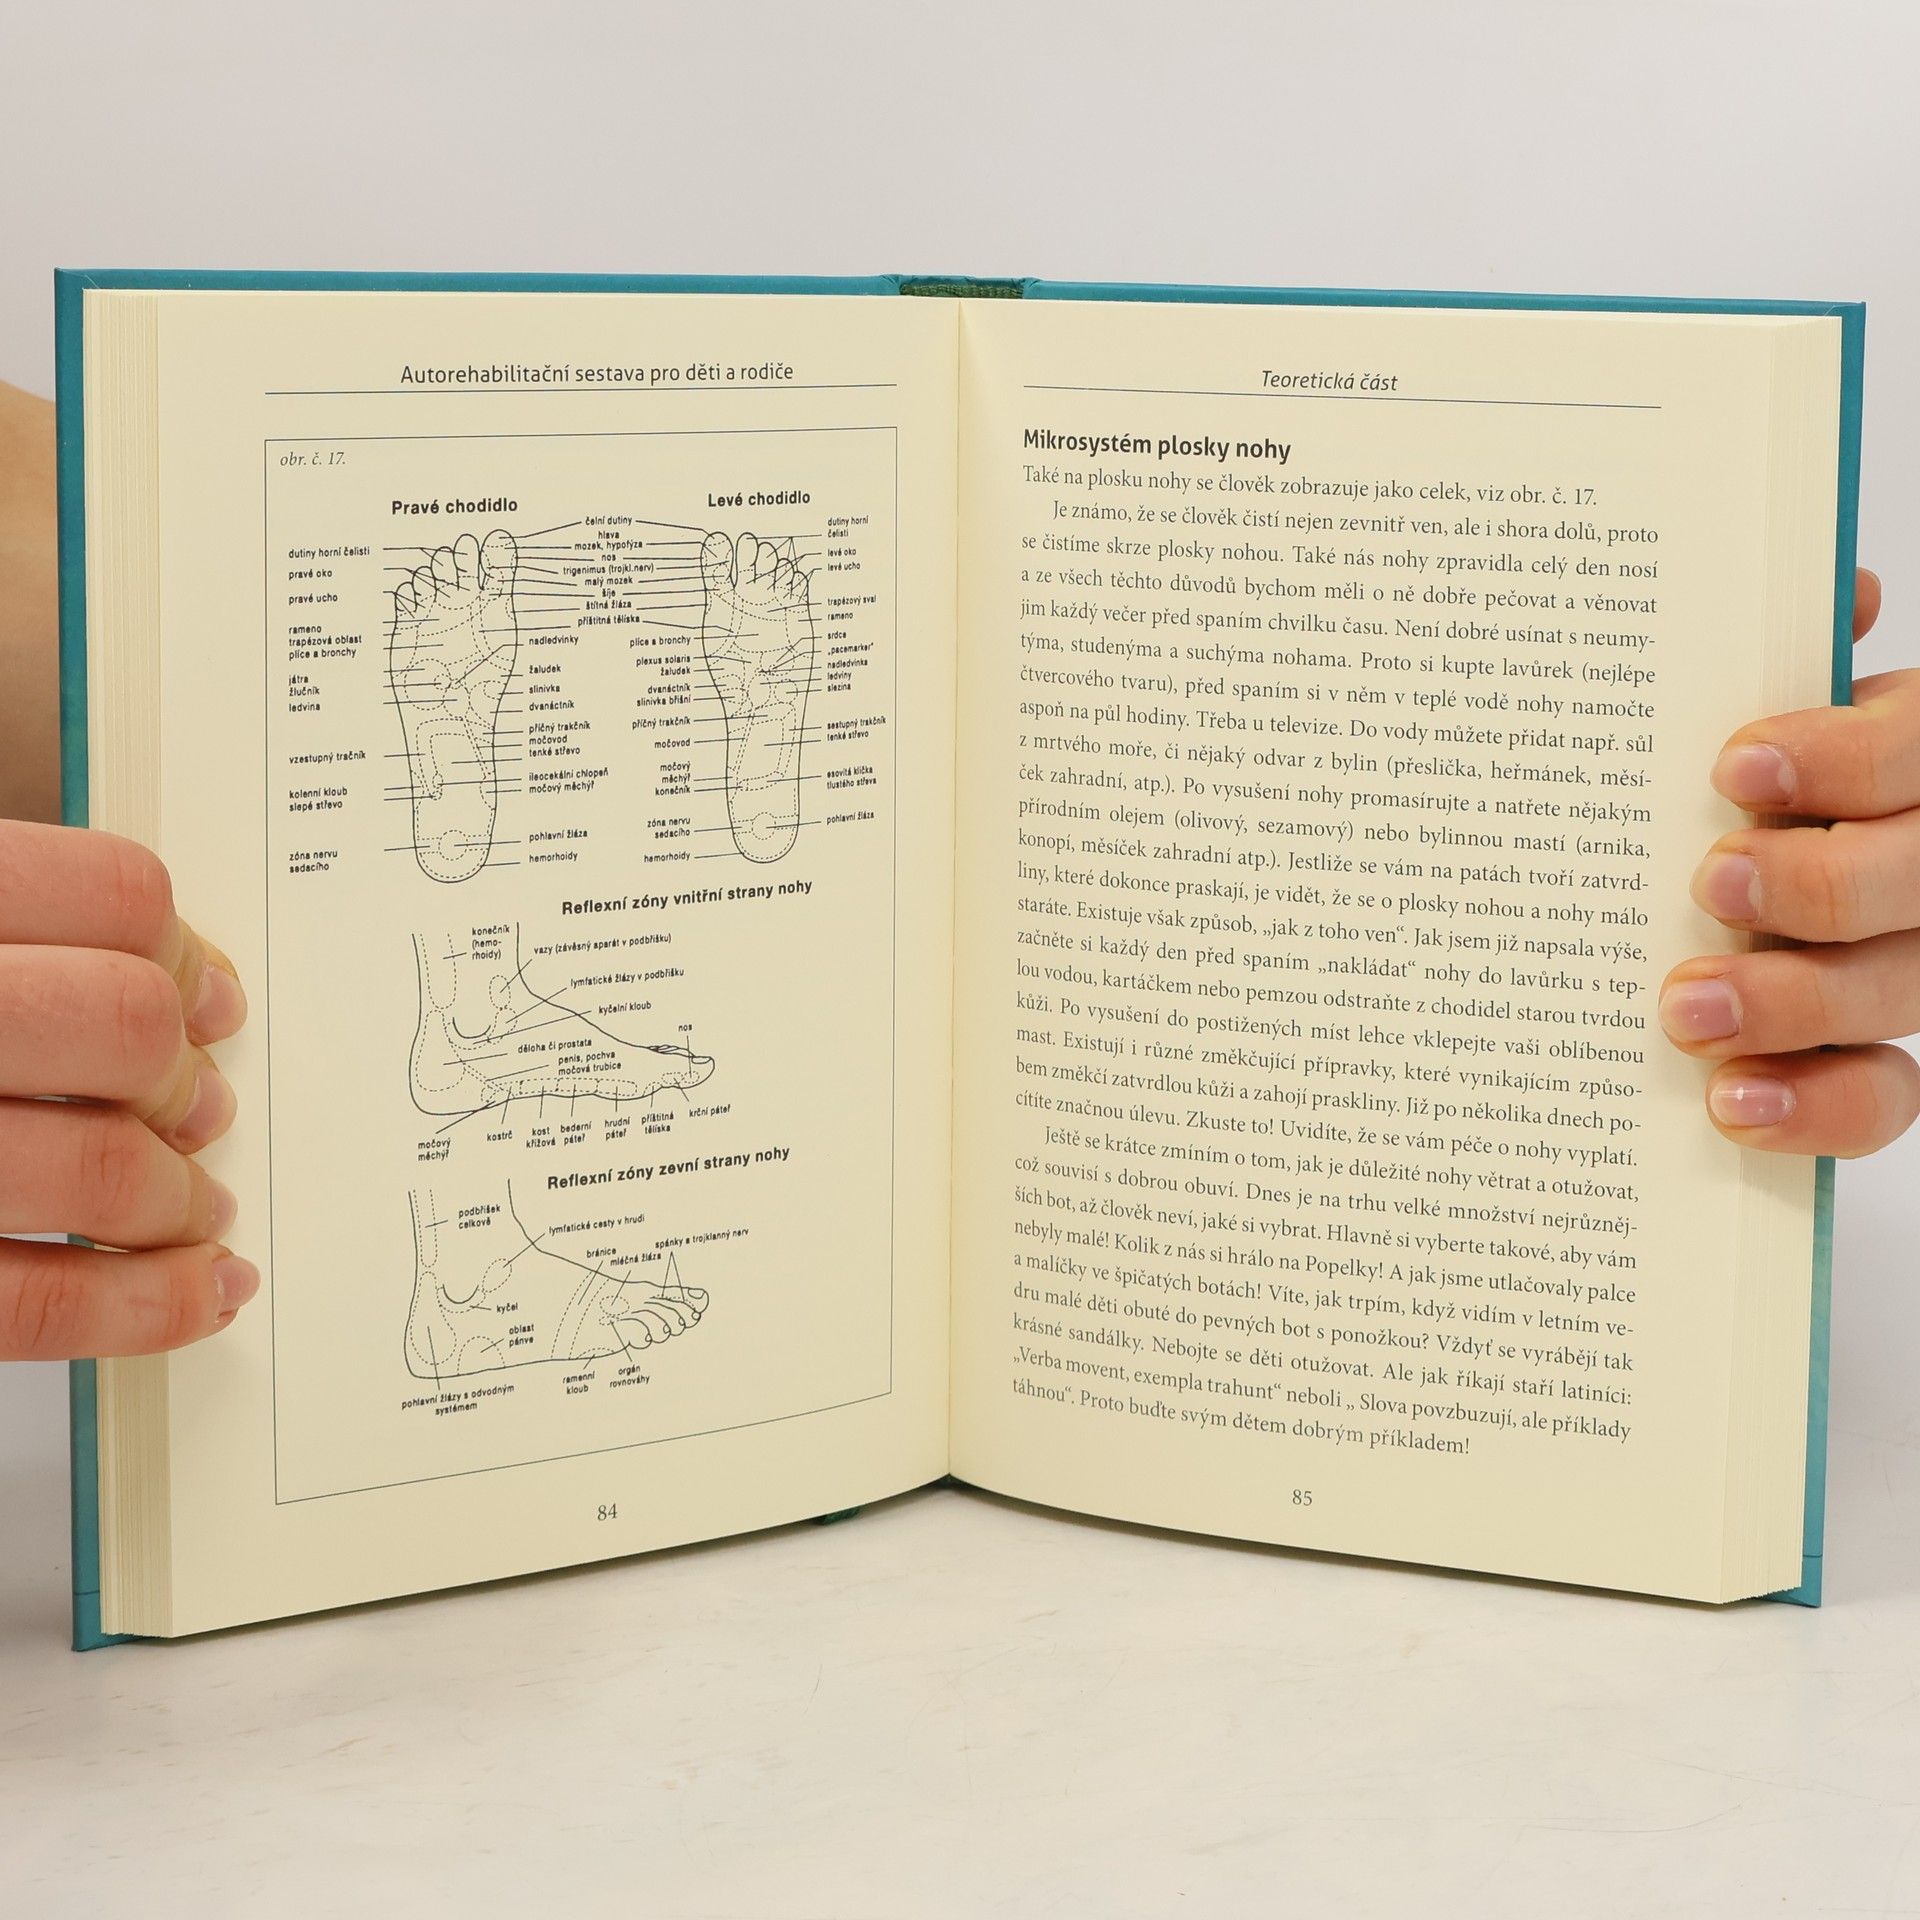 Autorehabilitační sestava pro děti a rodiče
obr. č. 17.
Pravé chodidlo
Levé chodidlo
čelní dutiny
hlava
mozek, hypofýza
nos
trigenimus (trojkl.nerv)
malý mozek
šíje
štítná žláza
příštitná tělíska
dutiny horní čelisti
pravé oko
pravé ucho
rameno
trapézová oblast
plíce a bronchy
játra
žlučník
ledvina
vzestupný tračník
kolenní kloub
slepé střevo
zóna nervu
sedacího
nadledvinky
žaludek
slinivka
dvanáctník
příčný trakčník
močovod
tenké střevo
ileocekální chlopeň
močový měchýř
pohlavní žláza
hemorhoidy
plíce a bronchy
plexus solaris
žaludek
dvanáctník
slinivka břišní
příčný trakčník
močovod
močový
měchýř
konečník
zóna nervu
sedacího
hemorhoidy
dutiny horní
čelisti
levé oko
levé ucho
trapézový sval
rameno
srdce
„pacemarker"
nadledvinka
ledviny
slezina
sestupný trakčník
tenké střevo
esovitá klička
tlustého střeva
pohlavní žláza
Reflexní zóny vnitřní strany nohy
konečník
(hemo-
rhoidy)
vazy (závěsný aparát v podbřišku)
lymfatické žlázy v podbřišku
kyčelní kloub
nos
děloha či prostata
penis, pochva
močová trubice
močový
měchýř
kostrč
kost
křížová
bederní
páteř
hrudní
páteř
příštitná
tělíska
krční páteř
Reflexní zóny zevní strany nohy
podbřišek
celkově
lymfatické cesty v hrudi
bránice
mléčná žláza
spánky a trojklanný nerv
kyčel
oblast
pánve
pohlavní žlázy s odvodným
systémem
ramenní
kloub
orgán
rovnováhy
84
Teoretická část
Mikrosystém plosky nohy
Také na plosku nohy se člověk zobrazuje jako celek, viz obr. č. 17.
Je známo, že se člověk čistí nejen zevnitř ven, ale i shora dolů, proto
se čistíme skrze plosky nohou. Také nás nohy zpravidla celý den nosí
a ze všech těchto důvodů bychom měli o ně dobře pečovat a věnovat
jim každý večer před spaním chvilku času. Není dobré usínat s neumy-
týma, studenýma a suchýma nohama. Proto si kupte lavůrek (nejlépe
čtvercového tvaru), před spaním si v něm v teplé vodě nohy namočte
aspoň na půl hodiny. Třeba u televize. Do vody můžete přidat např. sůl
z mrtvého moře, či nějaký odvar z bylin (přeslička, heřmánek, měsí-
ček zahradní, atp.). Po vysušení nohy promasírujte a natřete nějakým
přírodním olejem (olivový, sezamový) nebo bylinnou mastí (arnika,
konopí, měsíček zahradní atp.). Jestliže se vám na patách tvoří zatvrd-
liny, které dokonce praskají, je vidět, že se o plosky nohou a nohy málo
staráte. Existuje však způsob, „jak z toho ven“. Jak jsem již napsala výše,
začněte si každý den před spaním „nakládat“ nohy do lavůrku s tep-
lou vodou, kartáčkem nebo pemzou odstraňte z chodidel starou tvrdou
kůži. Po vysušení do postižených míst lehce vklepejte vaši oblíbenou
mast. Existují i různé změkčující přípravky, které vynikajícím způso-
bem změkčí zatvrdlou kůži a zahojí praskliny. Již po několika dnech po-
cítíte značnou úlevu. Zkuste to! Uvidíte, že se vám péče o nohy vyplatí.
Ještě se krátce zmíním o tom, jak je důležité nohy větrat a otužovat,
což souvisí s dobrou obuví. Dnes je na trhu velké množství nejrůzněj-
ších bot, až člověk neví, jaké si vybrat. Hlavně si vyberte takové, aby vám
nebyly malé! Kolik z nás si hrálo na Popelky! A jak jsme utlačovaly palce
a malíčky ve špičatých botách! Víte, jak trpím, když vidím v letním ve-
dru malé děti obuté do pevných bot s ponožkou? Vždyť se vyrábějí tak
krásné sandálky. Nebojte se děti otužovat. Ale jak říkají staří latiníci:
„Verba movent, exempla trahunt“ neboli „ Slova povzbuzují, ale příklady
táhnou“. Proto buďte svým dětem dobrým příkladem!
85